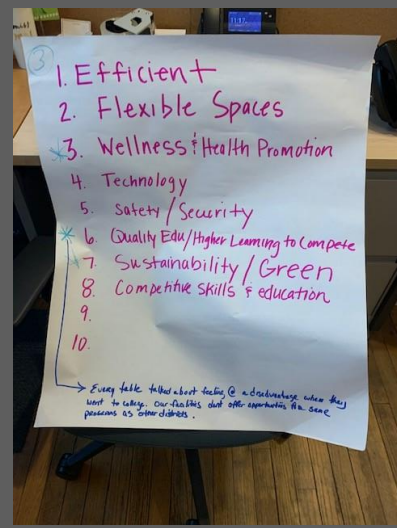 3
1. Efficient
2. Flexible Spaces
3. Wellness & Health Promotion
4. Technology
5. Safety/Security
6. Quality Edu/Higher Learning to Compete
7. Sustainability/Green
8. Competitive Skills & education
9.
10.
Every table talked about feeling @ a disadvantage when they
went to college. Our facilities dont offer opportunities for same
programs as other districts.